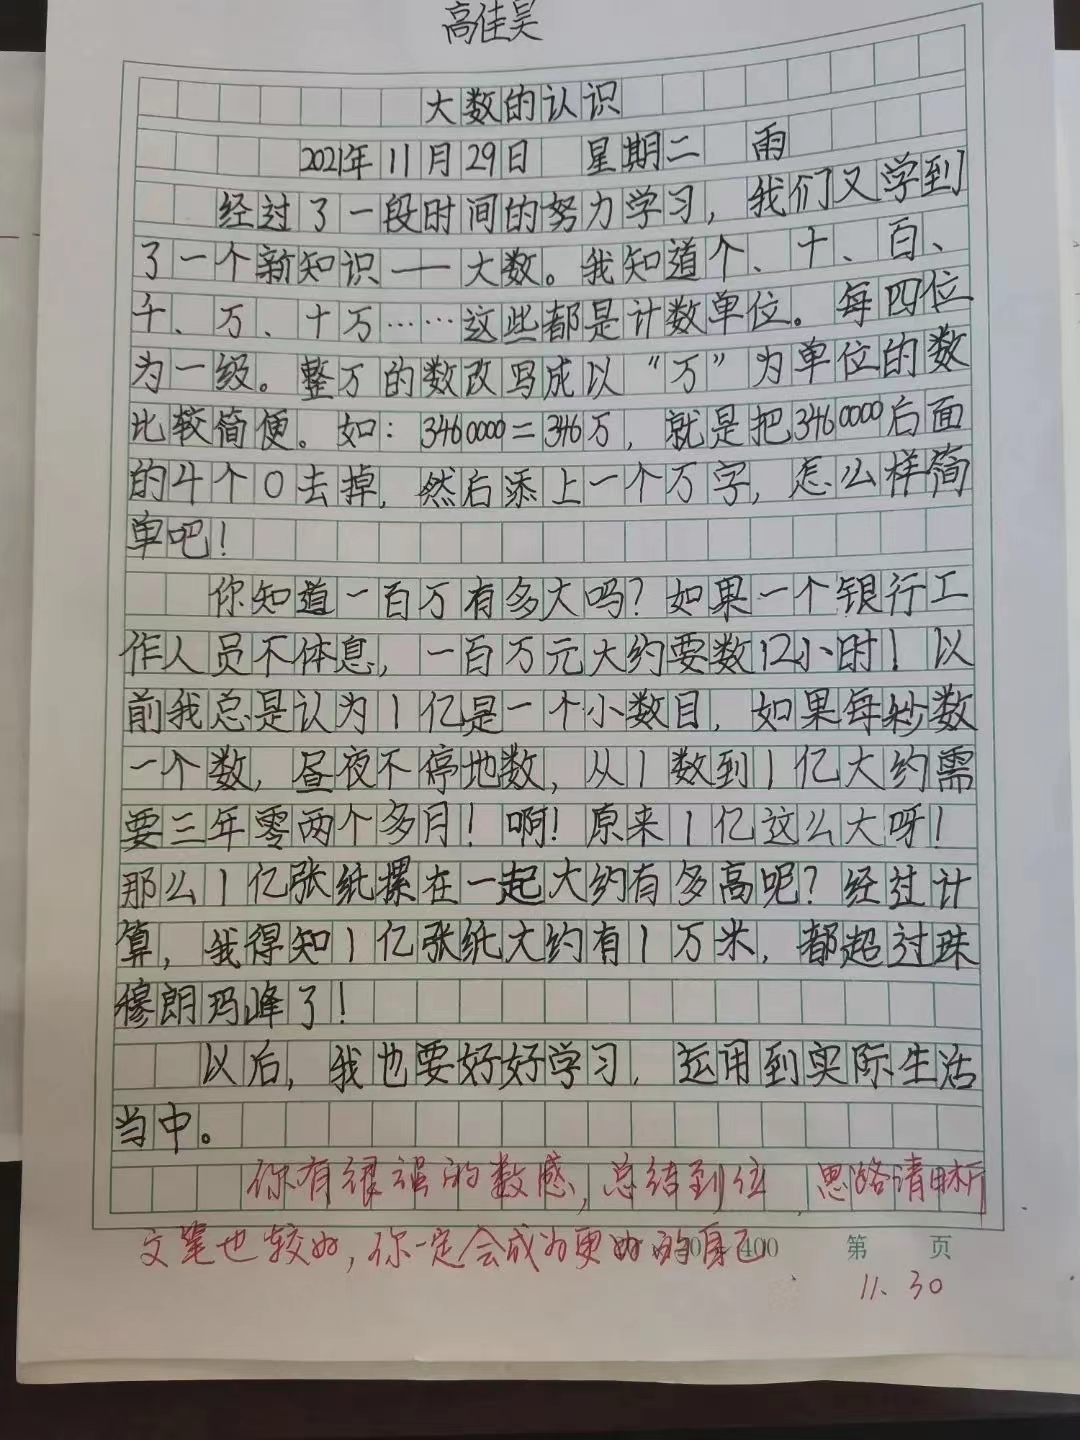 高佳昊
大数的认识
2021年11月29日 星期二 雨
经过了一段时间的努力学习，我们又学到
了一个新知识——大数。我知道个、十、百、
千、万、十万……这些都是计数单位。每四位
为一级。整万的数改写成以“万”为单位的数
比较简便。如：3460000=346万，就是把3460000后面
的4个0去掉，然后添上一个万字，怎么样简
单吧！
你知道一百万有多大吗？如果一个银行工
作人员不体息，一百万元大约要数12小时！以
前我总是认为1亿是一个小数目，如果每秒数
一个数，昼夜不停地数，从1数到1亿大约需
要三年零两个多月！啊！原来1亿这么大呀！
那么1亿张纸摞在一起大约有多高呢？经过计
算，我得知1亿张纸大约有1万米，都超过珠
穆朗玛峰了！
以后，我也要好好学习，运用到实际生活
当中。
你有很强的数感，总结到位 思路清晰
文笔也较好，你一定会成为更好的自己
400 第 页
11.30